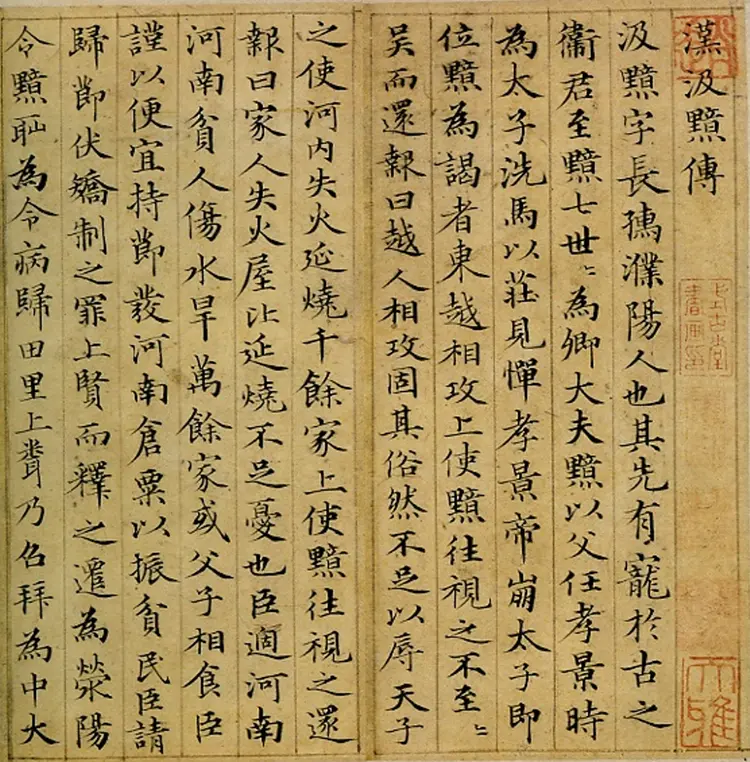 漢汲黯傳
汲黯字長孺濮陽人也其先有寵於古之
衛君至黯七世〻為卿大夫黯以父任孝景時
為太子洗馬以莊見憚孝景帝崩太子即
位黯為謁者東越相攻上使黯往視之不至〻
吳而還報曰越人相攻固其俗然不足以辱天子
之使河内失火延燒千餘家上使黯往視之還
報曰家人失火屋比延燒不足憂也臣適河南
河南貧人傷水旱萬餘家或父子相食臣
謹以便宜持節發河南倉粟以振貧民臣請
歸節伏矯制之罪上賢而釋之遷為滎陽
令黯耻為令病歸田里上聞乃召拜為中大
式古堂
書画印
大雅